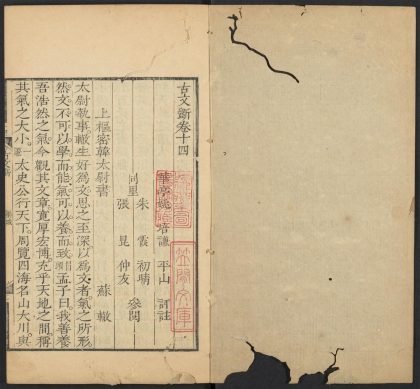 古文斲卷十四
華亭姚培謙 平山 評註
同里
朱 霞 初晴
張 晃 仲友
參閱
上樞密韓太尉書
蘇轍
太尉執事轍生好為文思之至深以為文者氣之所形
然文不可以學而能氣可以養而致孟子曰我善養
吾浩然之氣今觀其文章寬厚宏博充乎天地之間稱
其氣之大小太史公行天下周覽四海名山大川與
笠閒文庫